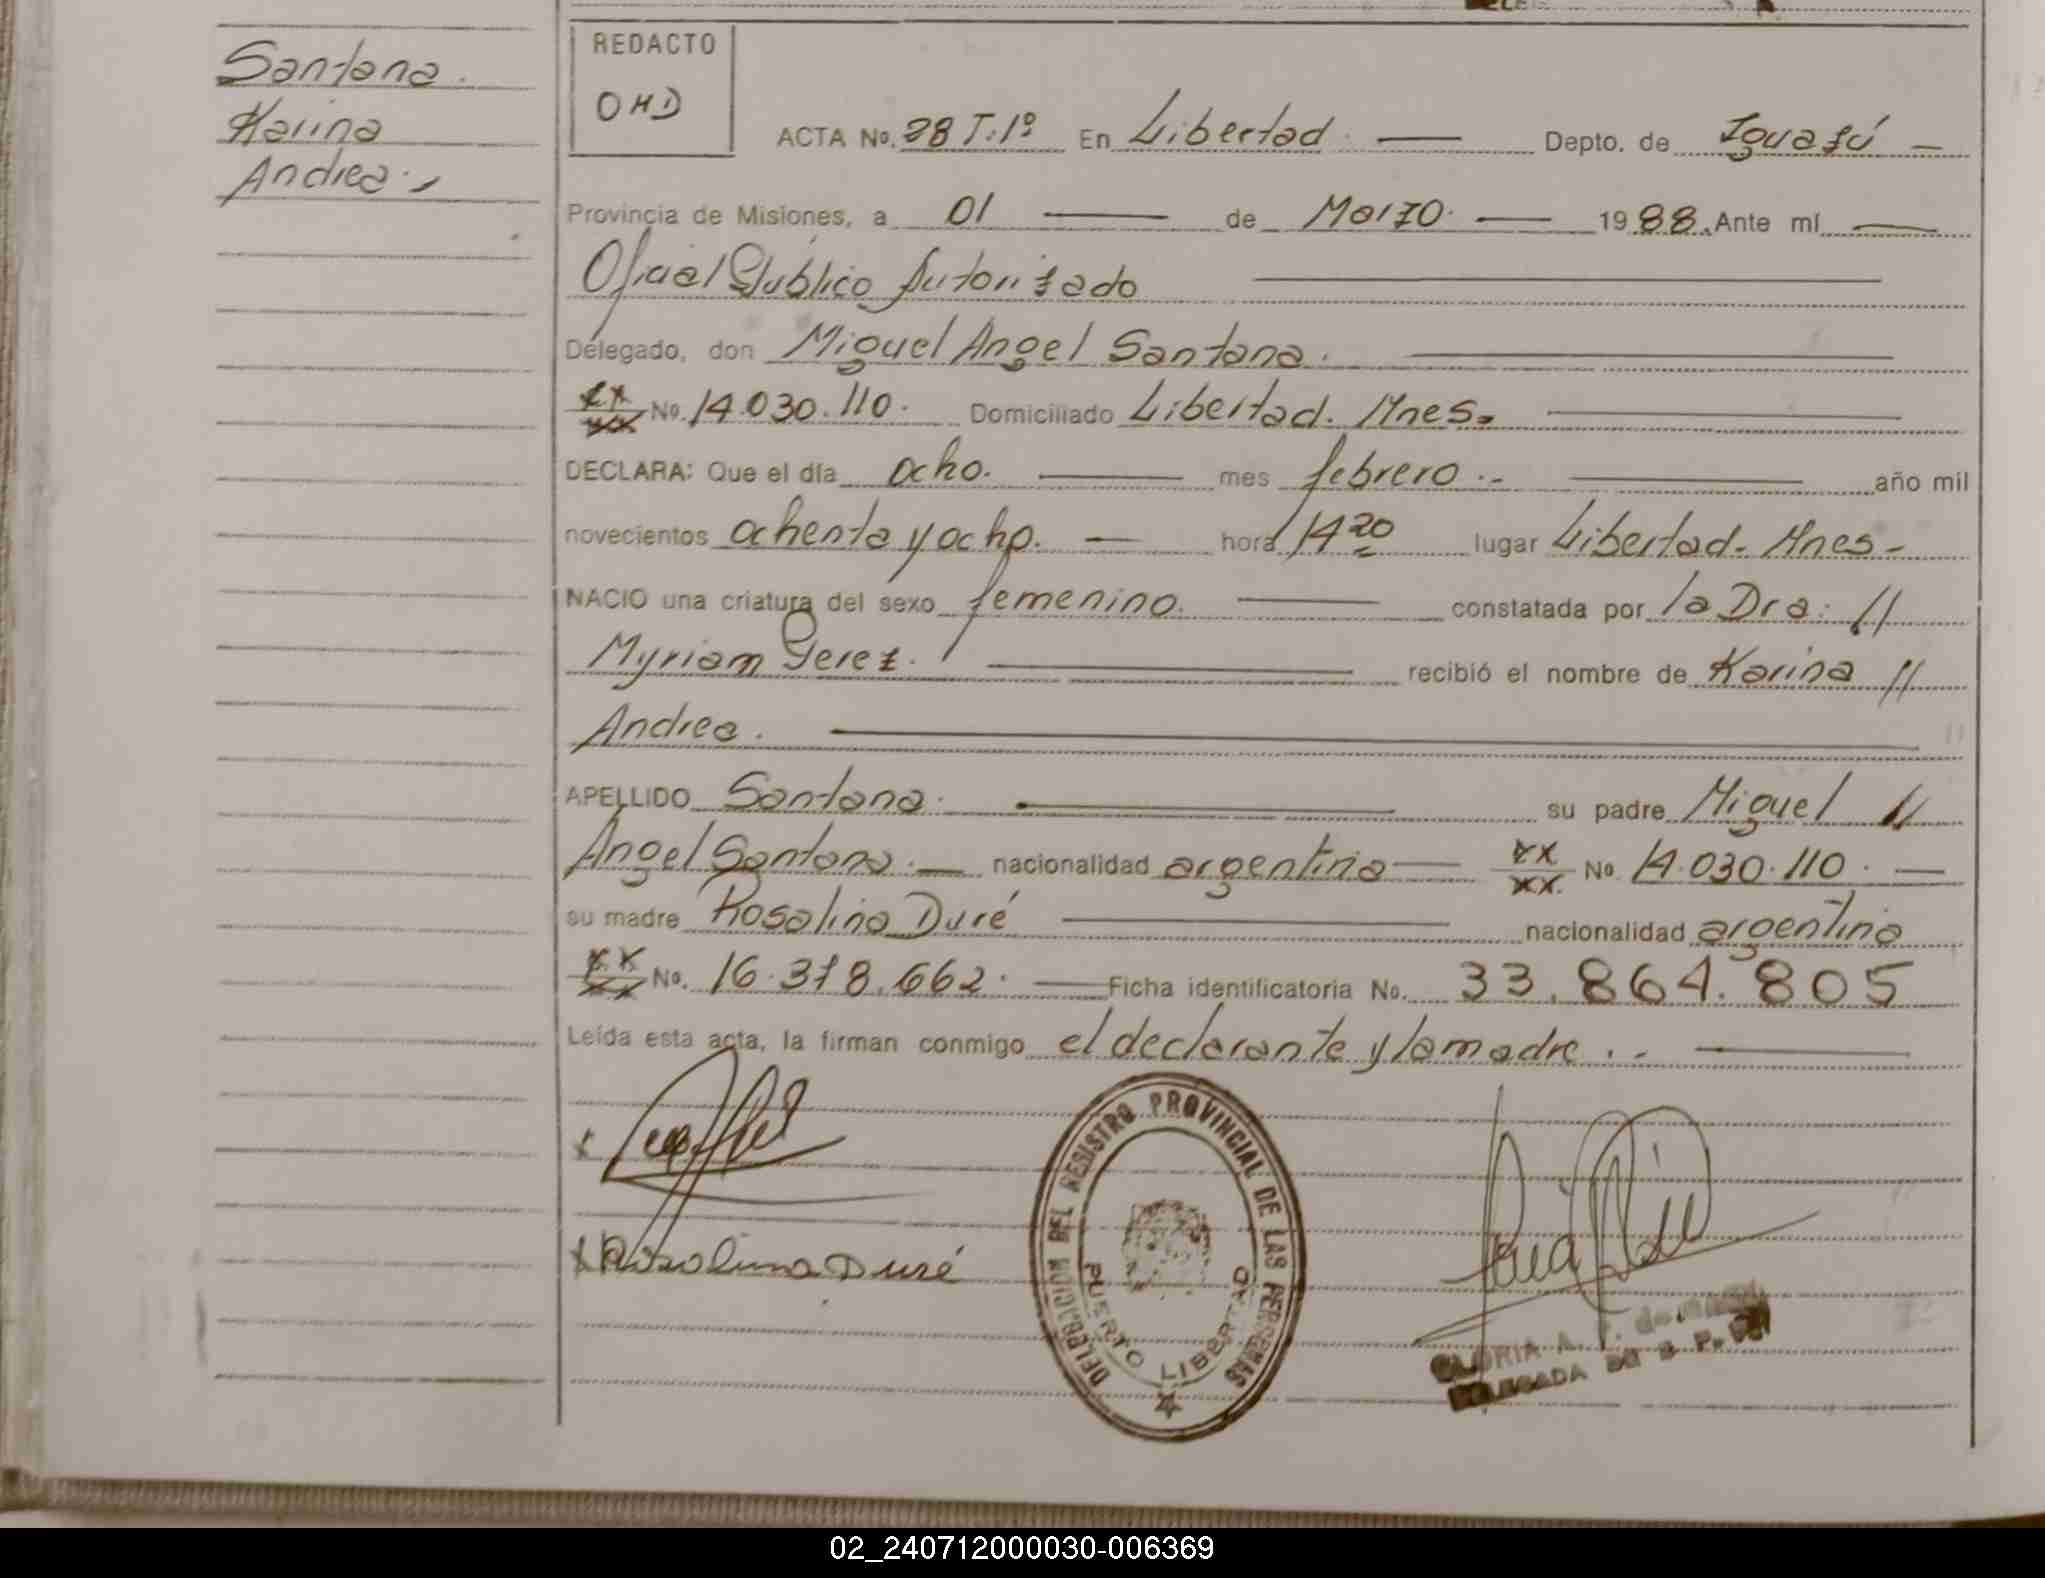 Santana.
Karina
Andrea.-
REDACTO
OHD
ACTA No. 28 T:1º En Libertad. — Depto. de Iguazú —
Provincia de Misiones, a 01 — de Marzo. — 1988. Ante mí —
Oficial Público Autorizado —
Delegado, don Miguel Angel Santana. —
xx
xx No. 14.030.110. Domiciliado Libertad. Mnes. —
DECLARA: Que el día ocho. — mes febrero.- — año mil
novecientos ochenta y ocho. — hora 14 20 lugar Libertad- Mnes-
NACIO una criatura del sexo femenino. — constatada por la Dra. //
Myriam Perez. — recibió el nombre de Karina //
Andrea. —
APELLIDO Santana. — su padre Miguel //
Angel Santana. — nacionalidad argentina — xx
xx. No. 14.030.110. —
su madre Rosalina Duré — nacionalidad argentina
xx
xx No. 16.378.662. — Ficha identificatoria No. 33.864.805
Leída esta acta, la firman conmigo el declarante y la madre.- —
x
x Rosalina Duré
DELEGACION DEL REGISTRO PROVINCIAL DE LAS PERSONAS
PUERTO LIBERTAD
GLORIA A.
DELEGADA
02_240712000030-006369